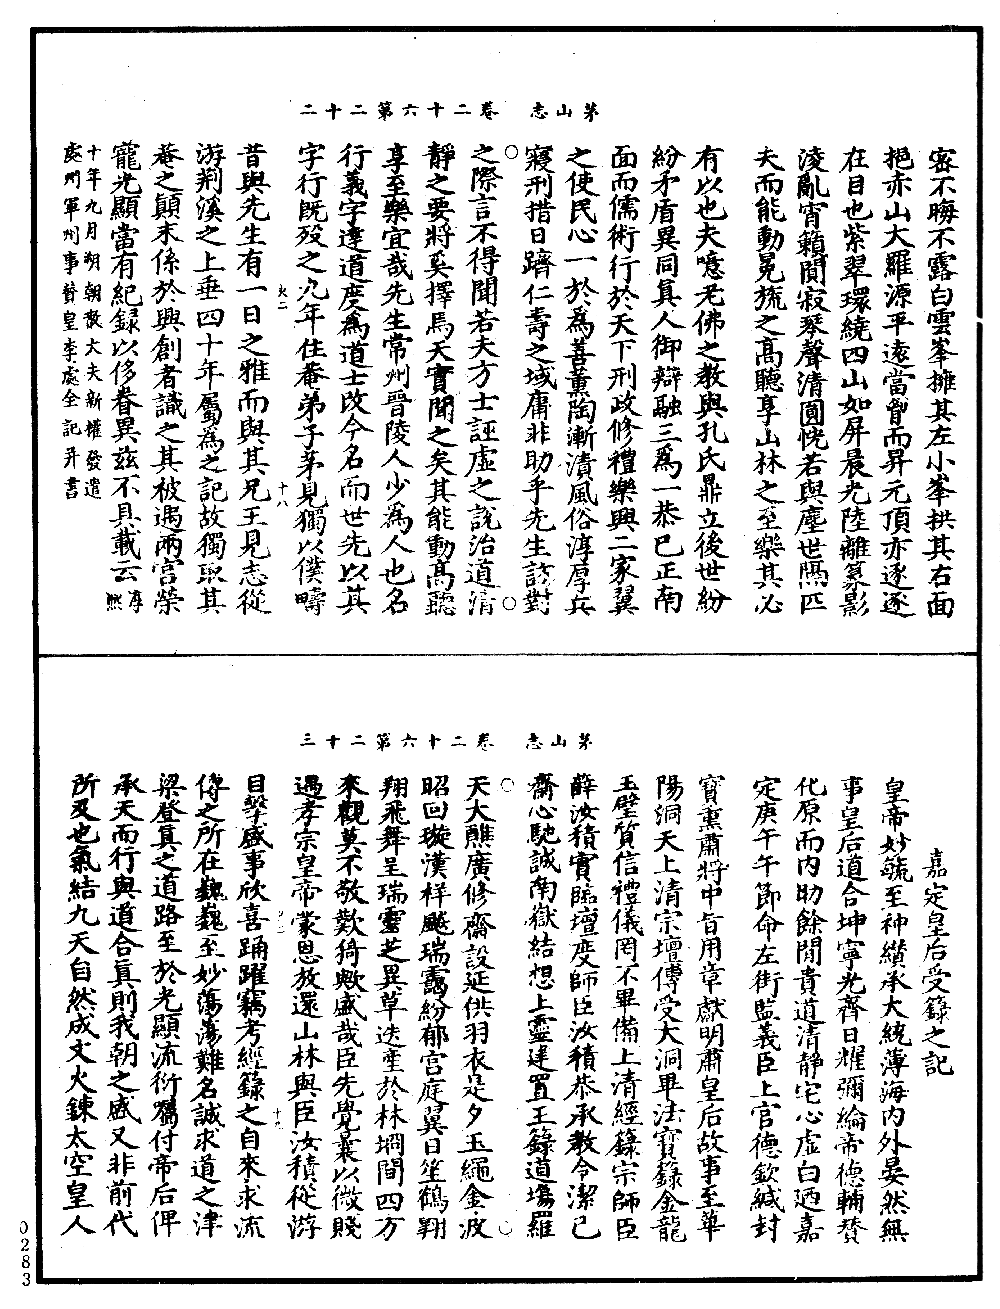 茅山志　卷二十六第二十二
密不晦不露白雲峯擁其左小峯拱其右面
挹赤山大羅源平遠當脅而昇元頂亦逐逐
在目也紫翠環繞四山如屏晨光陸離篆影
淩亂宵籟闃寂琴聲清圓恍若與塵世隔匹
夫而能動冕旒之高聽享山林之至樂其必
有以也夫噫老佛之教與孔氏鼎立後世紛
紛矛盾異同真人御辯融三為一恭己正南
面而儒術行於天下刑政修禮樂興二家翼
之使民心一於為善薰陶漸漬風俗淳厚兵
寢刑措日躋仁壽之域庸非助乎先生訪對
之際言不得聞若夫方士誣虛之說治道清
靜之要將奚擇焉天實聞之矣其能動高聽
享至樂宜哉先生常州晉陵人少為人也名
行義字達道度為道士改今名而世先以其
字行既歿之九年住菴弟子茅見獨以僕疇
昔與先生有一日之雅而與其兄王見志從
游荆溪之上垂四十年屬為之記故獨敘其
菴之顛末係於興創者識之其被遇兩宮榮
寵光顯當有紀錄以侈眷異茲不具載云淳熙
十年九月朔朝散大夫新權發遣
處州軍州事贊皇李處全記并書
茅山志　卷二十六第二十三
嘉定皇后受錄之記
皇帝妙毓至神纘承大統薄海內外晏然無
事皇后道合坤寧光齊日耀彌綸帝德輔贊
化原而內助餘閒貴道清靜宅心虛白迺嘉
定庚午午節命左街監義臣上官德欽緘封
寶熏肅將中旨用章獻明肅皇后故事至華
陽洞天上清宗壇傳受大洞畢法寶籙金龍
玉璧質信禮儀罔不畢備上清經籙宗師臣
薛汝積實臨壇度師臣汝積恭承教令潔己
齋心馳誠南嶽結想上靈建置王籙道場羅
天大醮廣修齋設延供羽衣是夕玉繩金波
昭回璇漢祥飈瑞靄紛郁宮庭翼日笙鶴翔
翔飛舞呈瑞靈芝異草迭產於林坰間四方
來觀莫不敬歎猗歟盛哉臣先覺曩以微賤
遇孝宗皇帝蒙恩放還山林與臣汝積從游
目擊盛事欣喜踊躍竊考經錄之自來求流
傳之所在巍巍至妙蕩蕩難名誠求道之津
梁登真之道路至於光顯流衍囑付帝后俾
承天而行與道合真則我朝之盛又非前代
所及也氣結九天自然成文火鍊太空皇人
0283